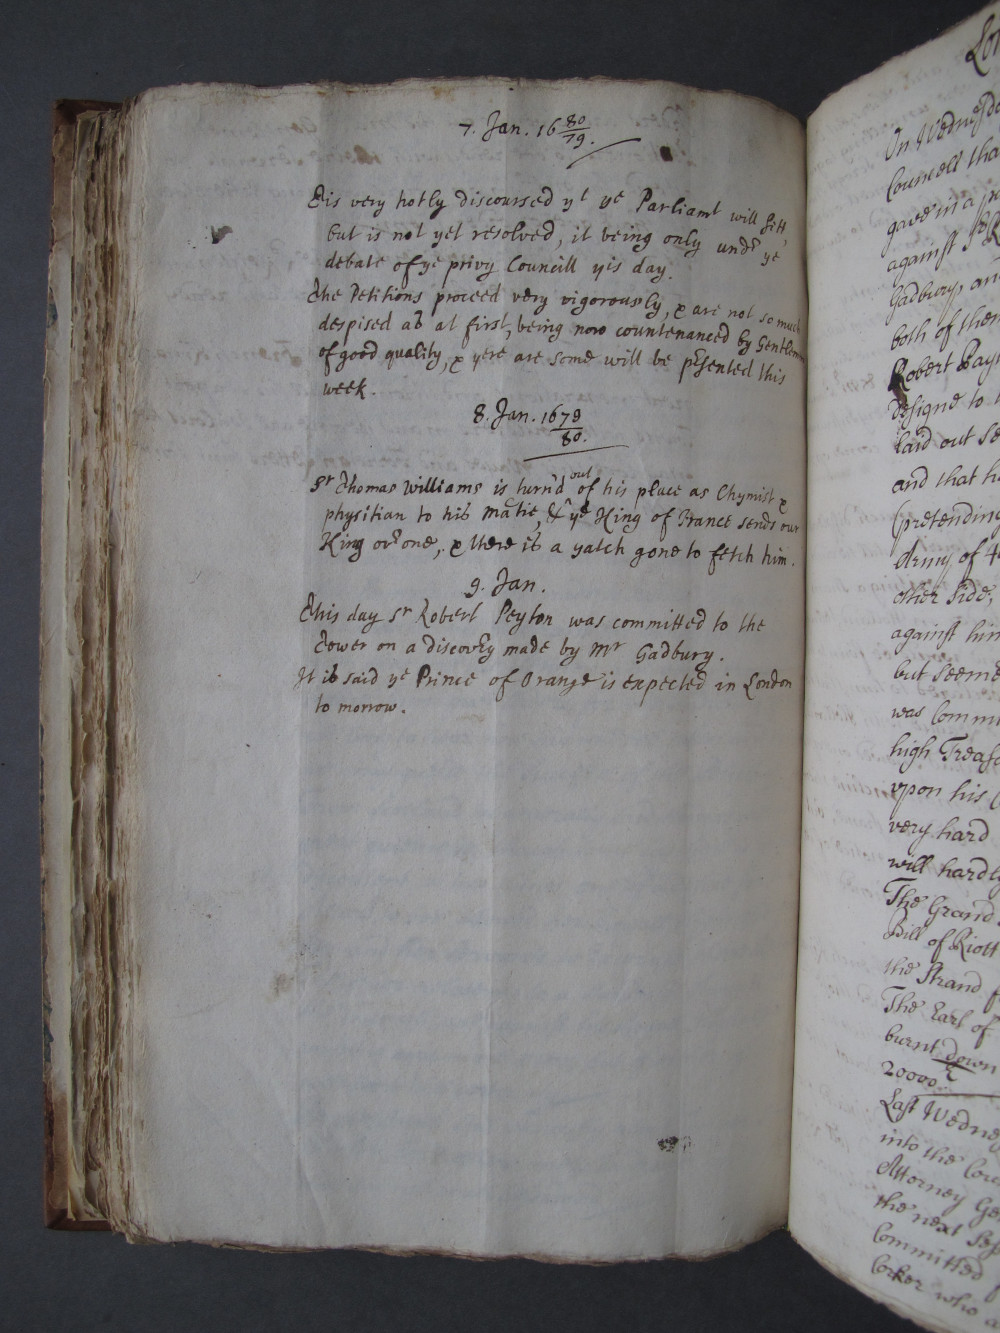 7. Jan. 16 80/79.
Tis very hotly discoursed yt ye Parliamt will sitt,
but is not yet resolved, it being only undr ye
debate of ye privy Councill yis day.
The Petitions proceed very vigorously, & are not so much
despised as at first, being now countenanced by Gentlemen
of good quality, & yere are some will be presented this
week.
8. Jan. 1679/80.
Sr Thomas Williams is turn'd out of his place as Chymist &
physitian to his matie, & ye King of France sends our
King or one, & there is a yatch gone to fetch him.
9. Jan.
This day Sr Robert Peyton was committed to the
Tower on a discovry made by Mr Gadbury.
It is said ye Prince of Orange is expected in London
to morrow.
On Wednesda
Councell tha
gave in a
against Sr R
Gadbury, an
both of them
Robert Pay
designe to
laid out se
and that h
(pretending
Army of 4
other side,
against him
but seeme
was Comm
high Treaso
upon his
very hard
will hardly
The Grand
Bill of Riott
the Strand f
The Earl of
burnt down
20000
Last Wedne
into the
Attorney Ge
the next Se
Committed
Corker who a